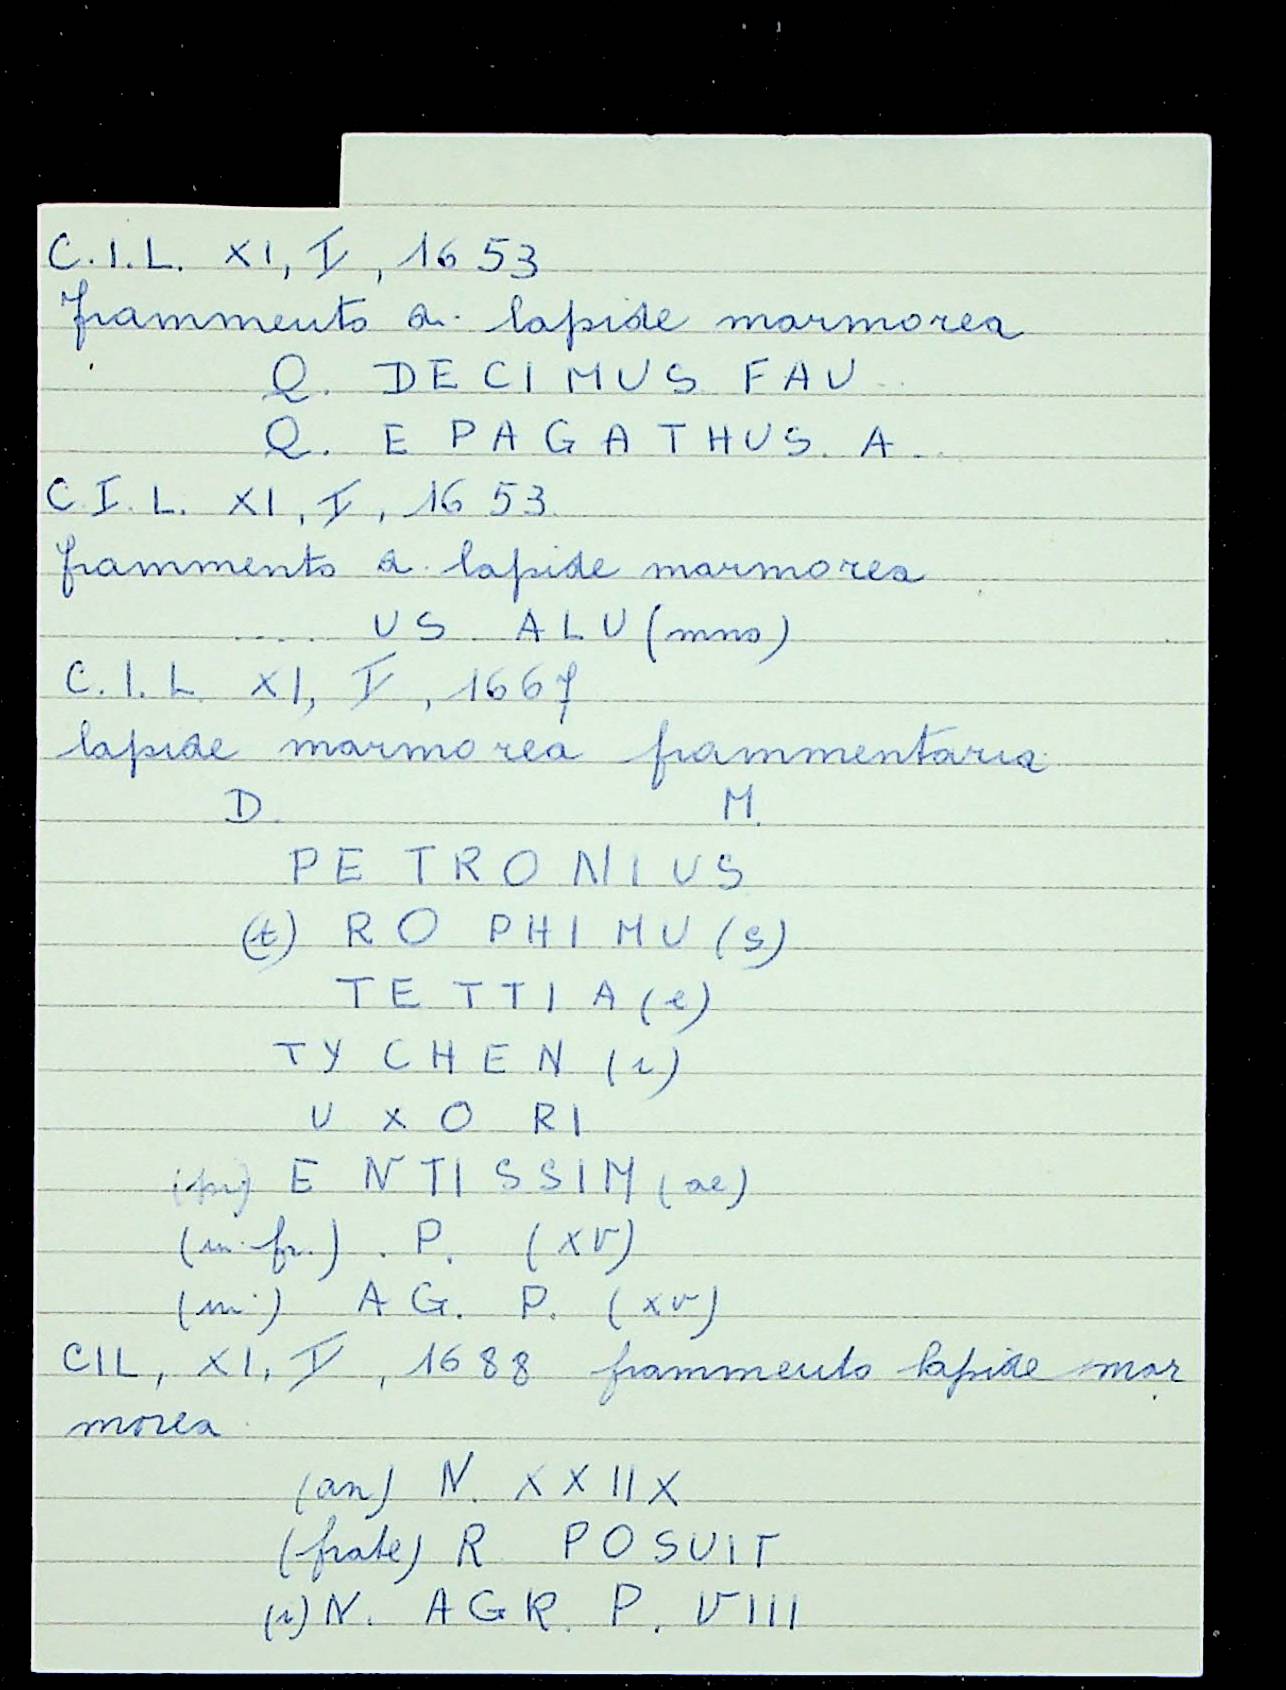 C.I.L. XI, I, 1653
frammento di lapide marmorea
Q. DECIMUS FAU...
Q. EPAGATHUS. A...
C.I.L. XI, I, 1653.
frammento di lapide marmorea
.... US ALU (mno)
C.I.L. XI, I, 1667
lapide marmorea frammentaria
D. M.
PETRONIUS
(t) ROPHIMU (s)
TETTIA (e)
TYCHEN (i)
UXORI
(pi) ENTISSIM (ae)
(in fr.) . P. (XV)
(in) AG. P. (XV)
CIL, XI, I, 1688 frammento lapide mar
morea
(an) N. XXIIX
(frate) R POSUIT
(i) N. AGR. P. VIII